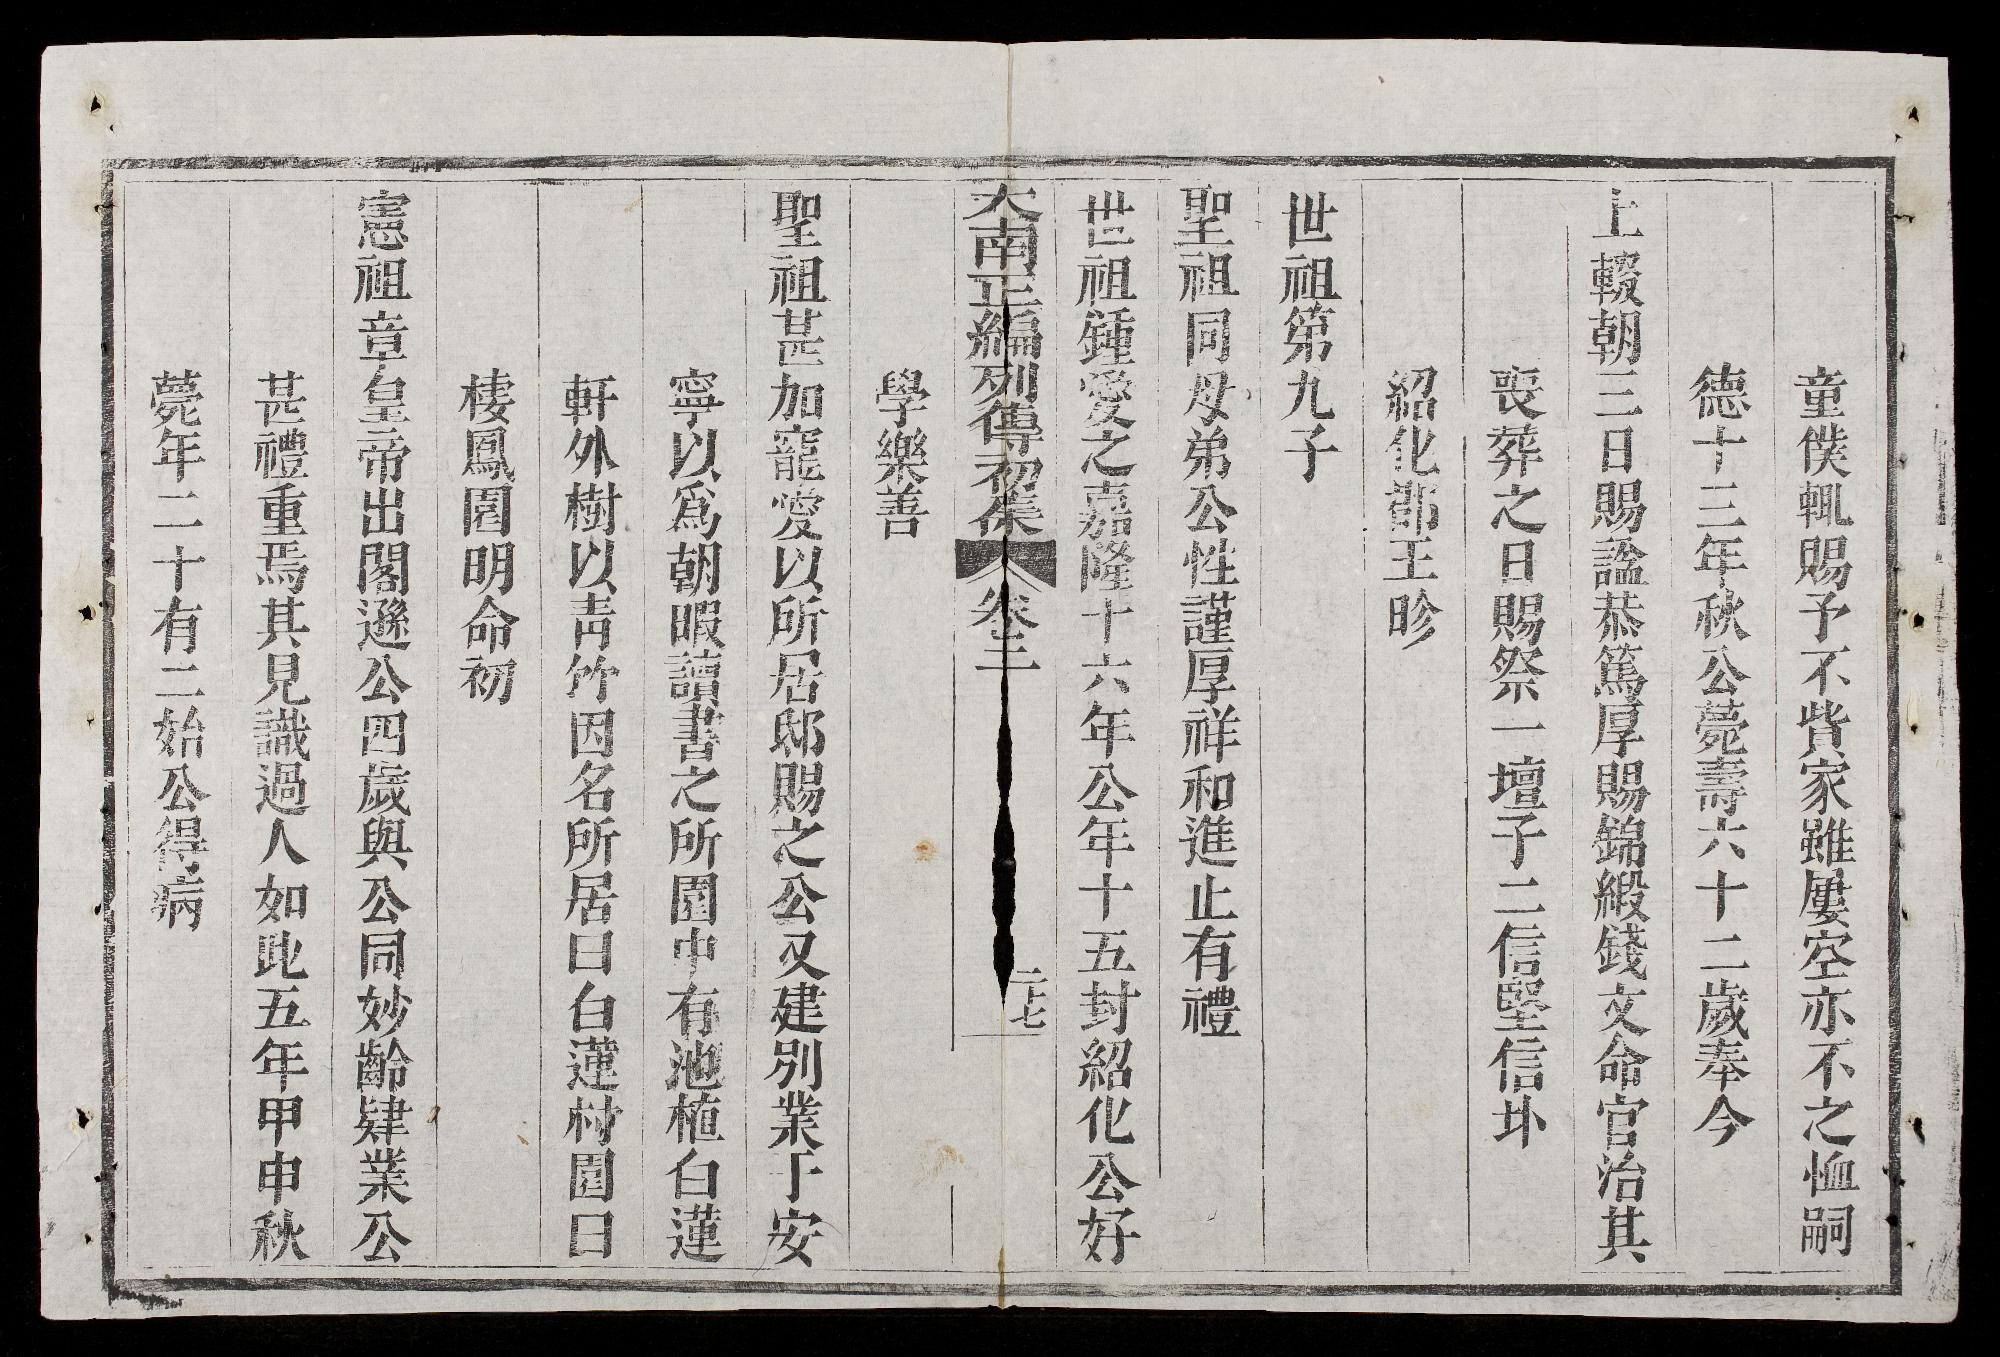 童僕輒賜予不貲家雖屢空亦不之恤嗣
德十三年秋公薨壽六十二歲奉今
上輟朝三日賜謚恭篤厚賜錦緞錢文命官治其
喪葬之日賜祭一壇子二信堅信圤
紹化郡王昣
世祖第九子
聖祖同母弟公性謹厚祥和進止有禮
世祖鍾愛之嘉隆十六年公年十五封紹化公好
大南正編列傳初集 卷三 二十七
學樂善
聖祖甚加寵愛以所居邸賜之公又建別業于安
寧以爲朝暇讀書之所園中有池植白蓮
軒外樹以青竹因名所居曰白蓮村園曰
棲鳳園明命初
憲祖章皇帝出閣遜公四歲與公同妙齡肄業公
甚禮重焉其見識過人如此五年甲申秋
薨年二十有二始公得病